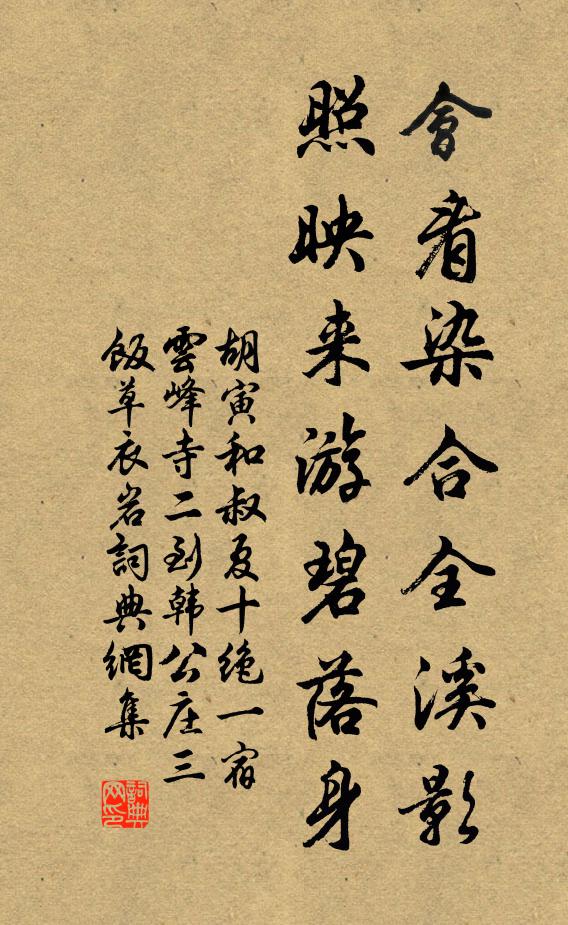 會看染合全溪影
照映来游碧落身
胡寅和叔夏十绝一宿
雲峰寺二到韩公庄三
飯草衣岩詞典網集
詞典
网印